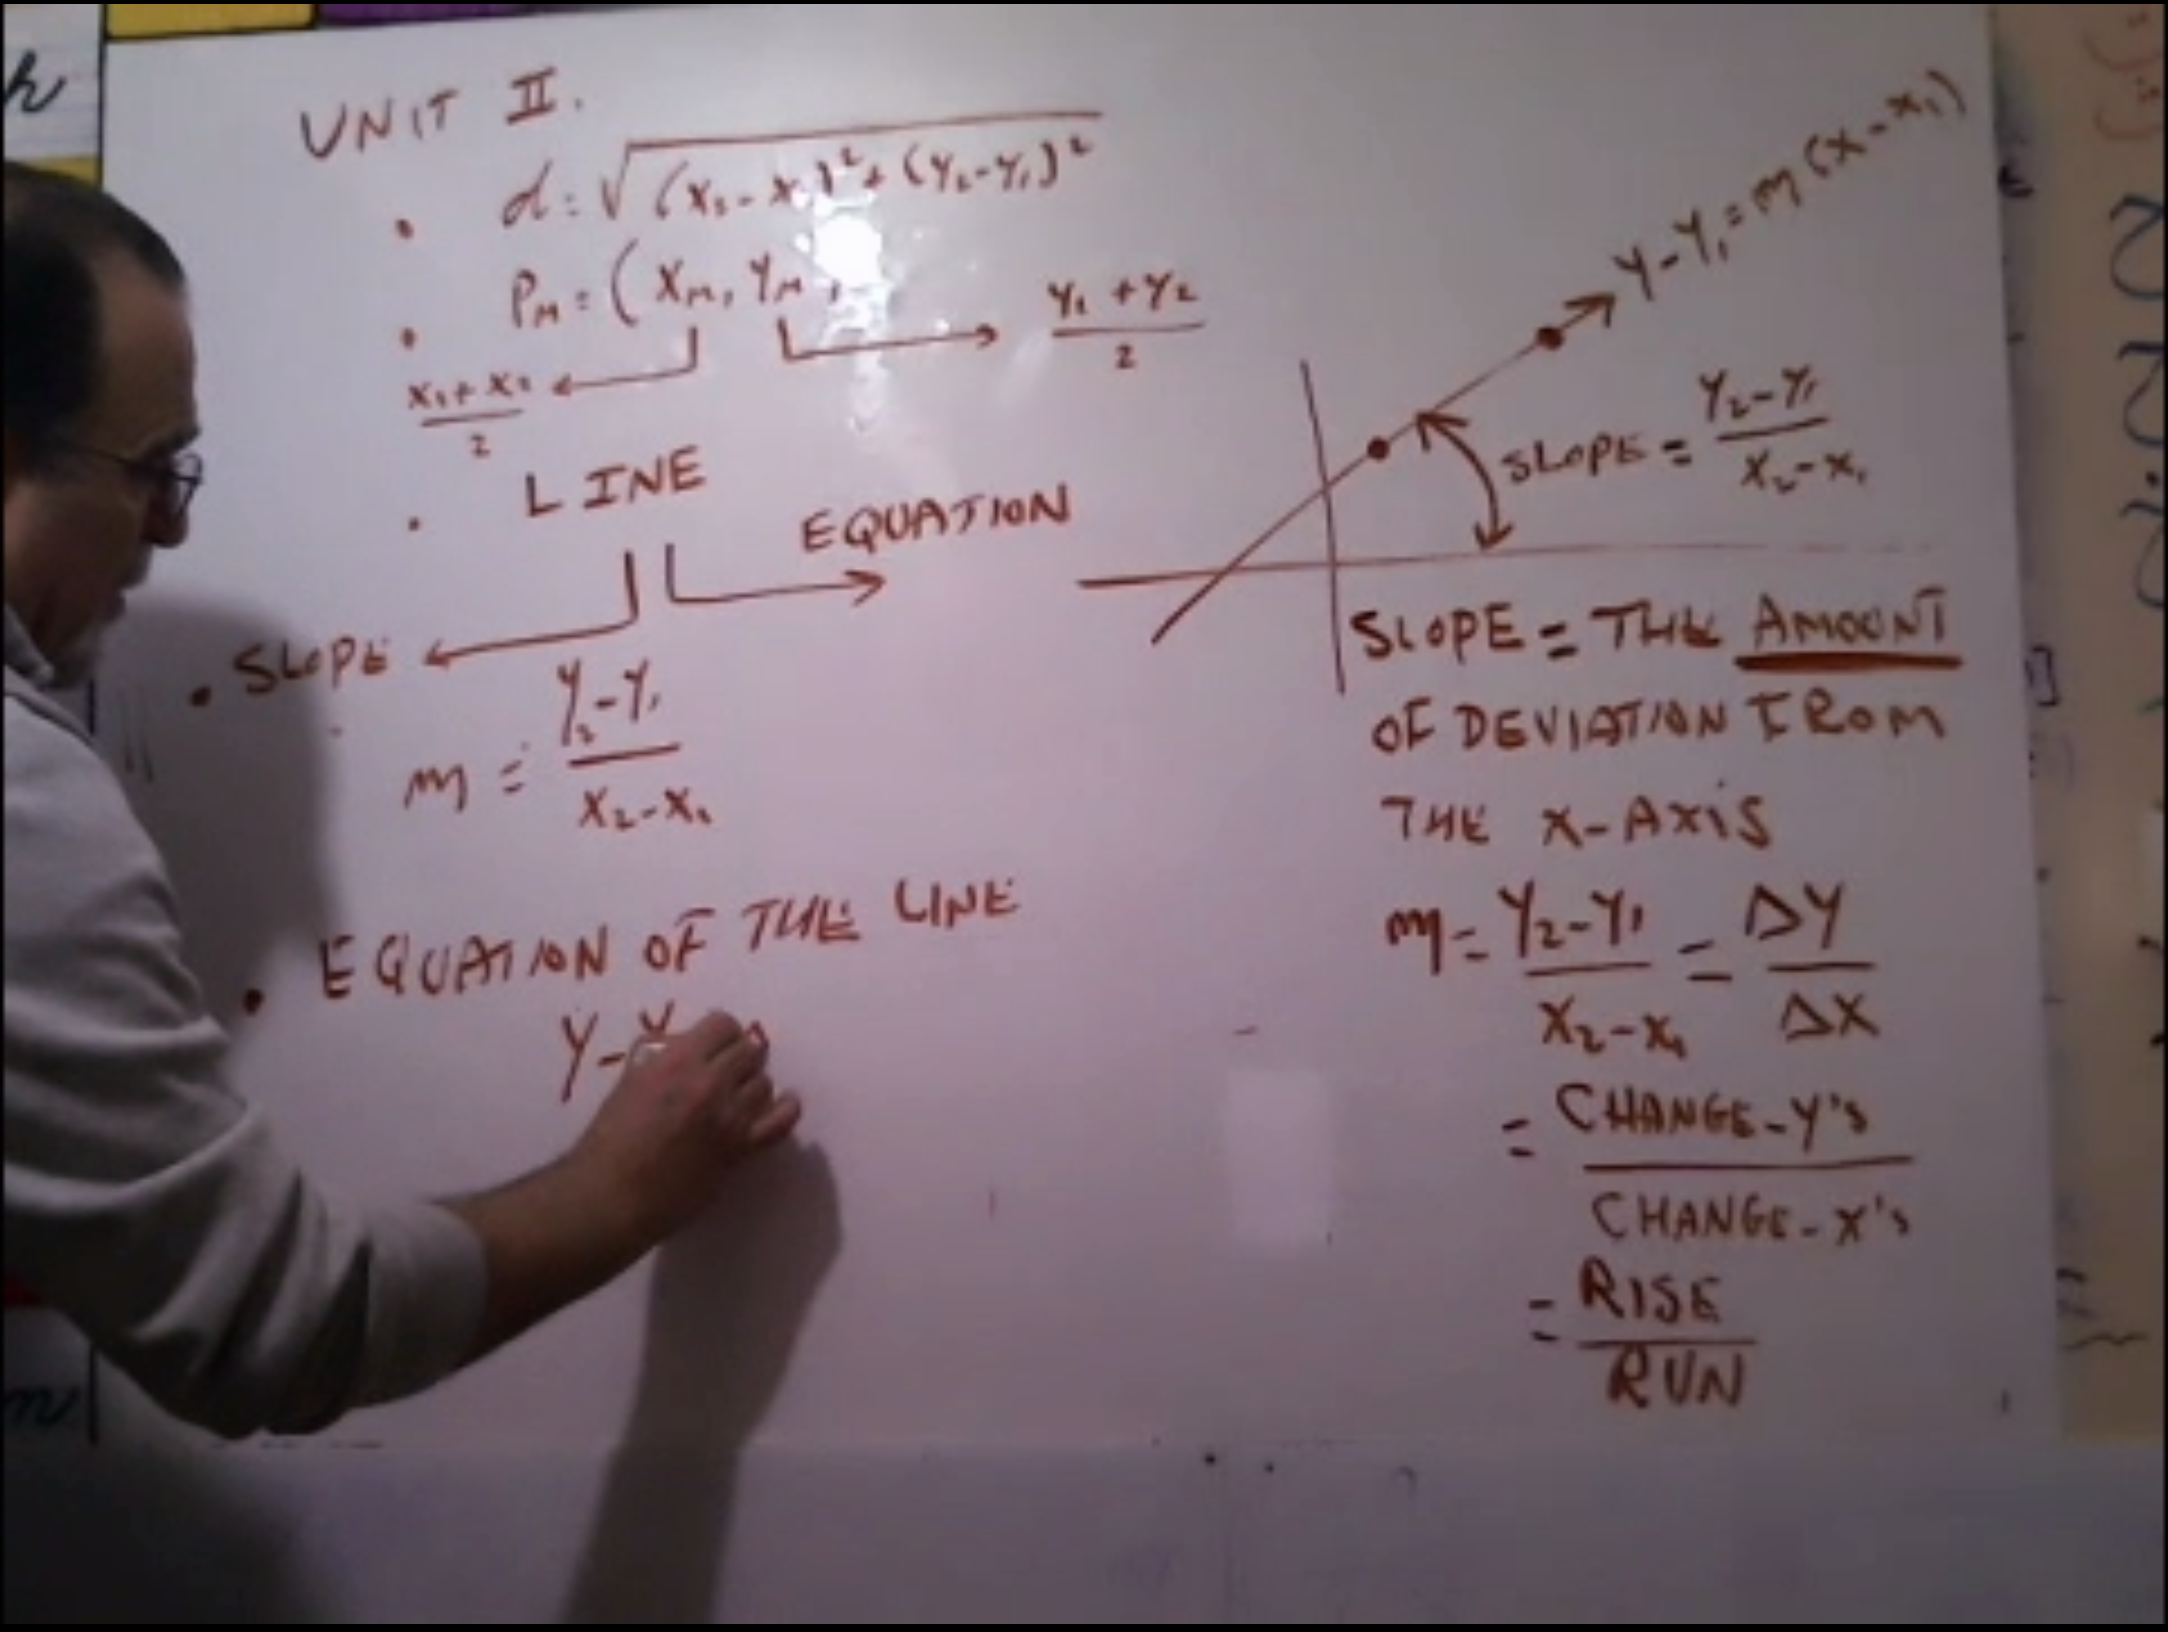 UNIT II.
• d = √(x₂-x₁)² + (y₂-y₁)²
• PM = (XM, YM)
x₁+x₂/2
y₁+y₂/2
• LINE
EQUATION
• SLOPE
m = y₂-y₁/x₂-x₁
• EQUATION OF THE LINE
y-y
y-y₁=m(x-x₁)
SLOPE = y₂-y₁/x₂-x₁
SLOPE = THE AMOUNT
OF DEVIATION FROM
THE X-AXIS
m = y₂-y₁/x₂-x₁ = ΔY/ΔX
= CHANGE-Y's/CHANGE-X's
= RISE/RUN